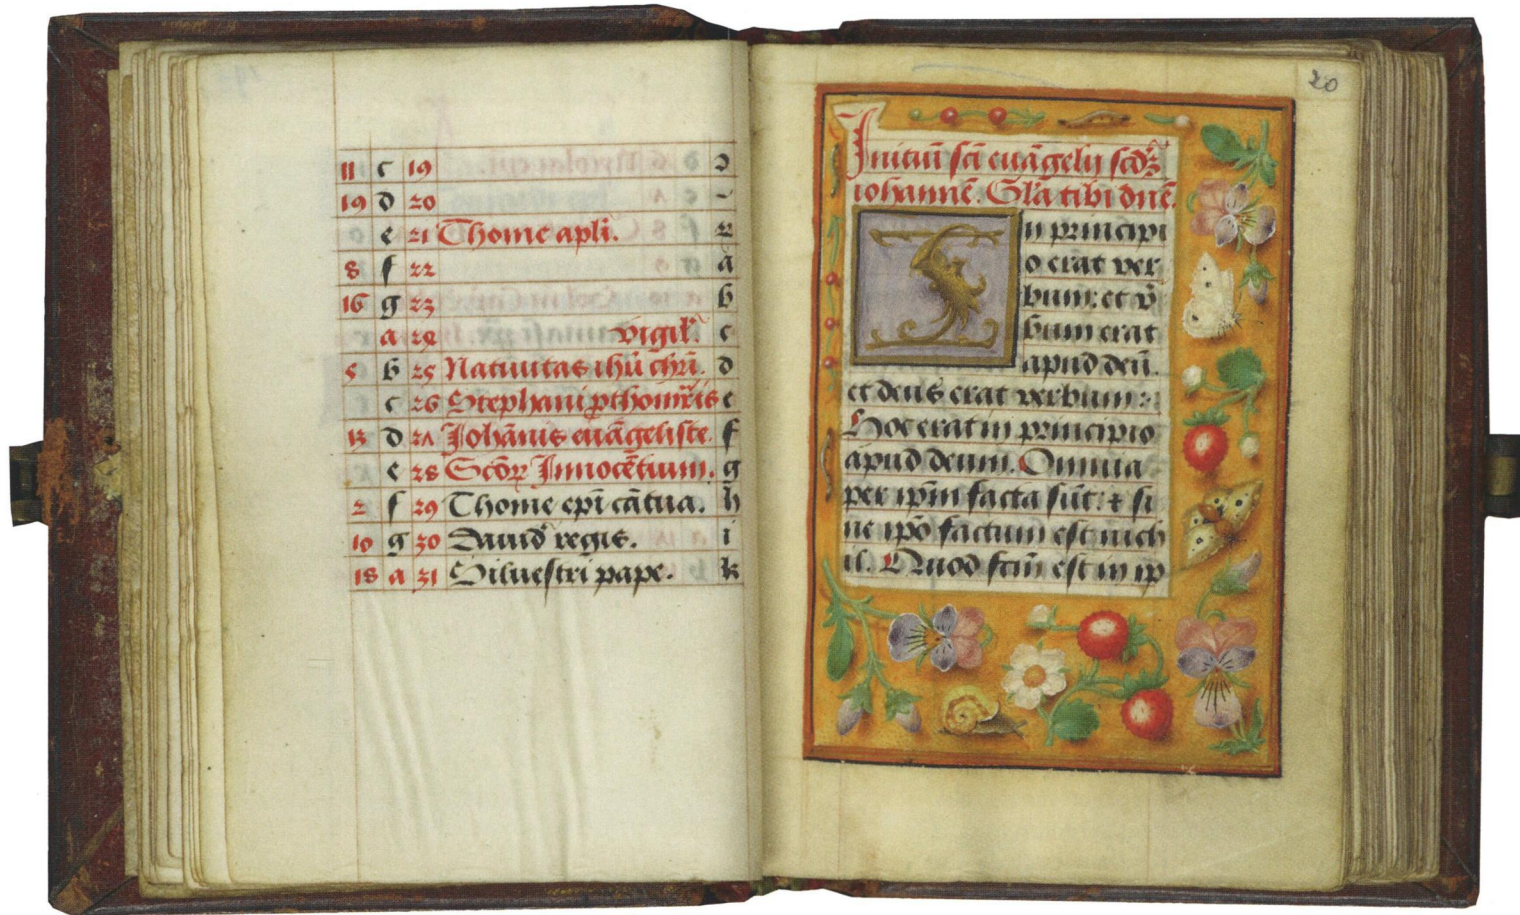 11 c 19 ɔ
19 d 20 ~
e 21 Thome apli. z
8 f 22 a
16 g 23 b
a 24 vigil'. c
5 b 25 Natiuitas ihū chrī. d
c 26 Stephani ꝓthom̄ris e
13 d 27 Johānis euāgeliste. f
e 28 Scōꝝ Innocētium. g
2 f 29 Thome epī cātua. h
10 g 30 Dauid regis. i
18 a 31 Siluestri pape. k
20
Initiū scī euāgelij scd'ȝ
iohannē. Glā tibi dnē.
In principi
o erat ver
bum: et v̄
bum erat
apud deū.
et deus erat verbum:
Hoc erat in principio
apud deum. Omnia
per ip̄m facta sūt: ⁊ si
ne ipō factum est nich
il. Quod fctm̄ est in ip